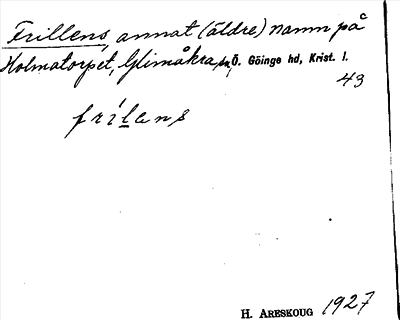 Frillens, annat (äldre) namn på
Holmatorpet, Glimåkra sn, Ö. Göinge hd, Krist. l.
43
frilens
H. ARESKOUG 1927